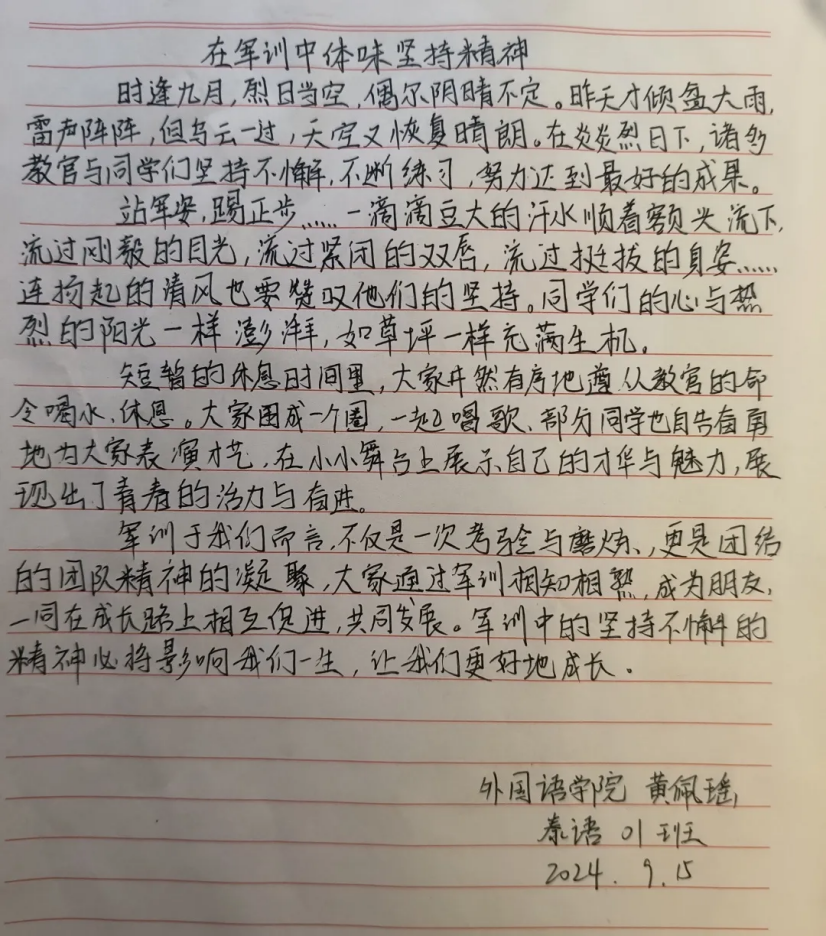 在军训中体味坚持精神
时逢九月，烈日当空，偶尔阴晴不定。昨天才倾盆大雨，
雷声阵阵，但乌云一过，天空又恢复晴朗。在炎炎烈日下，诸多
教官与同学们坚持不懈，不断练习，努力达到最好的成果。
站军姿，踢正步……一滴滴豆大的汗水顺着额头流下，
流过刚毅的目光，流过紧闭的双唇，流过挺拔的身姿……
连扬起的清风也要赞叹他们的坚持。同学们的心与热
烈的阳光一样澎湃，如草坪一样充满生机。
短暂的休息时间里，大家井然有序地遵从教官的命
令喝水、休息。大家围成一个圈，一起唱歌、部分同学也自告奋勇
地为大家表演才艺，在小小舞台上展示自己的才华与魅力，展
现出了青春的活力与奋进。
军训于我们而言，不仅是一次考验与磨炼、，更是团结
的团队精神的凝聚，大家通过军训相知相熟，成为朋友，
一同在成长路上相互促进，共同发展。军训中的坚持不懈的
精神必将影响我们一生，让我们更好地成长。
外国语学院 黄佩瑶
泰语01班
2024.9.15